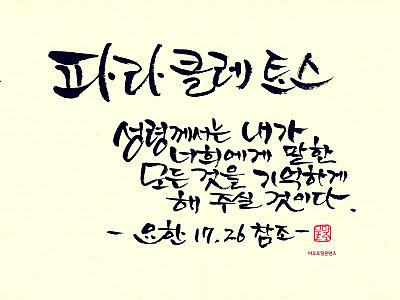 파·라·클레토스
성령께서는 내가
너희에게 말한
모든 것을 기억하게
해 주실 것이다.
- 요한 17.26 참조 -